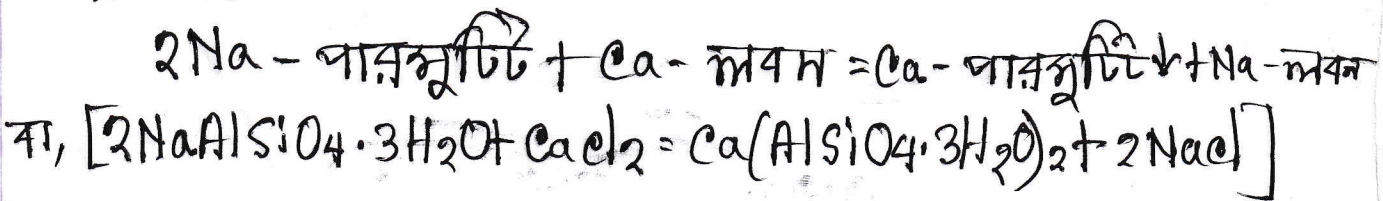 2Na - পারমুটিট + Ca - লবণ = Ca - পারমুটিট↓ + Na - লবন
বা, [2NaAlSiO4·3H2O + CaCl2 = Ca(AlSiO4·3H2O)2 + 2NaCl]